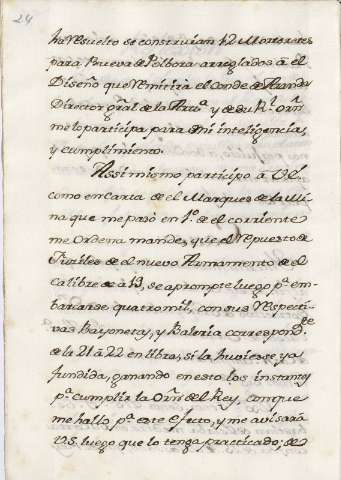 24
he resuelto se construian 12 Morteretes
para Prueva de Polbora arreglados à el
Diseño que remitirà el Conde de Aranda
Director gral. de la Arta. y de su Rl. Orn.
me lo participa para mi inteligencia,
y cumplimiento.
Assi mismo participo à V.S.
como en Carta de el Marques de la Mi
na que me pasó en 1º. de el corriente
me Ordena mande, que el repuesto de
Fusiles de el nuevo Armamento de el
Calibre de à 13, se apronte luego pa. em-
barcarse quatro mil, con sus respecti-
vas Bayonetas, y Baleria correspondte.
de la 21 à 22 en libra, si la huviesse ya
fundida, ganando en esto los instantes
pa. cumplir la Orn. del Rey, con que
me hallo pa. este efecto, y me avisarà
V.S. luego que lo tenga practicado; de